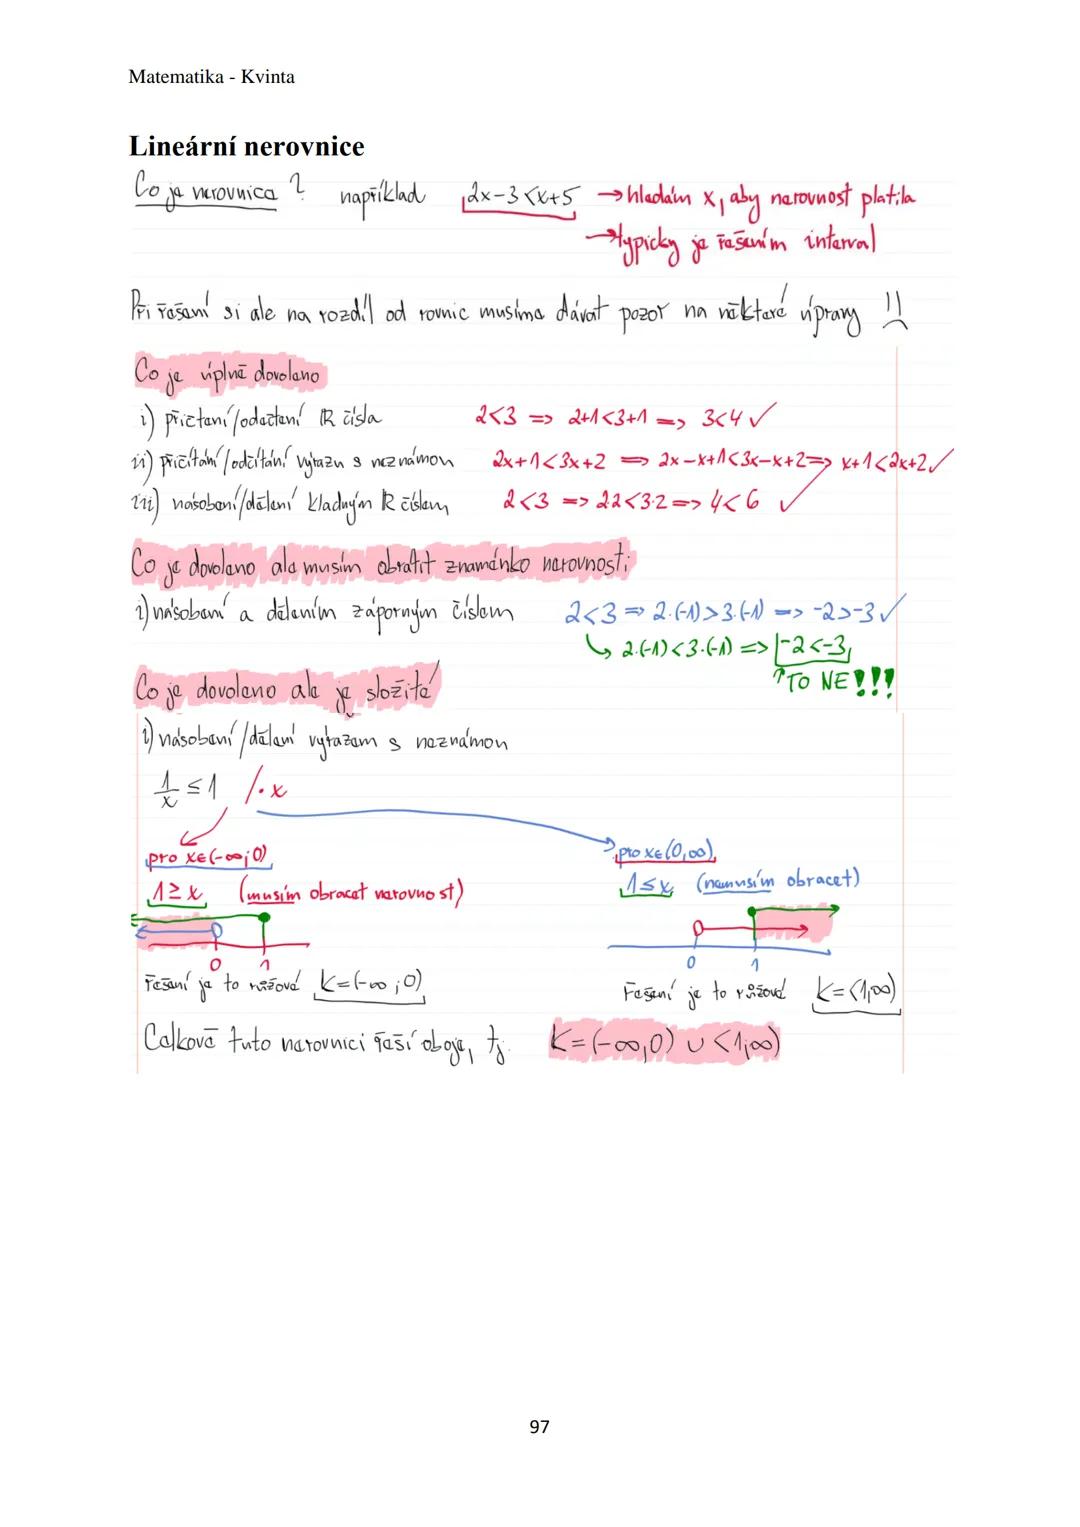 Matematika - Kvinta
Lineární nerovnice
Co je nerovnice ? například 2x-3<x+5 → hledám x, aby nerovnost platila
→ typicky je řešením interval
Při řešení si ale na rozdíl od rovnic musíme dávat pozor na některé úpravy !!
Co je úplně dovoleno
i) přičtení/odečtení ℝ čísla 2<3 => 2+1<3+1 => 3<4 ✓
ii) přičítání/odčítání výrazu s neznámou 2x+1<3x+2 => 2x-x+1<3x-x+2 => x+1<2x+2 ✓
iii) násobení/dělení kladným ℝ číslem 2<3 => 2·2<3·2 => 4<6 ✓
Co je dovoleno ale musím obrátit znaménko nerovnosti
i) násobení a dělením záporným číslem 2<3 => 2·(-1)>3·(-1) => -2>-3 ✓
↳ 2·(-1)<3·(-1) => -2<-3
↑TO NE!!!
Co je dovoleno ale je složité
i) násobení/dělení výrazem s neznámou
1/x ≤ 1 /·x
pro x∈(-∞;0) pro x∈(0,∞)
1≥x (musím obracet nerovnost) 1≤x (nemusím obracet)
0 1 0 1
řešení je to růžové K=(-∞;0) řešení je to růžové K=<1,∞)
Celkově tuto nerovnici řeší oboje, tj. K=(-∞,0) ∪ <1;∞)
97